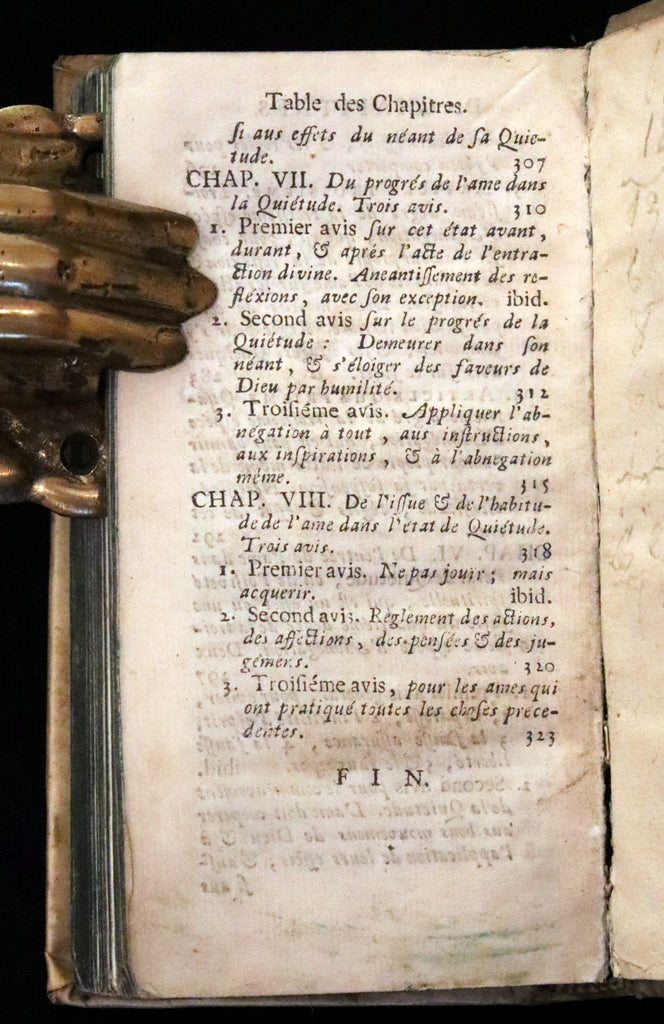 Table des Chapitres.
ſi aus effets du néant de ſa Quie-
tude. 307
CHAP. VII. Du progrés de l'ame dans
la Quiétude. Trois avis. 310
1. Premier avis ſur cet état avant,
durant, & aprés l'acte de l'entra-
ction divine. Aneantiſſement des re-
fléxions, avec ſon exception. ibid.
2. Second avis ſur le progrés de la
Quiétude : Demeurer dans ſon
néant, & s'éloiger des faveurs de
Dieu par humilité. 312
3. Troiſiéme avis. Appliquer l'ab-
négation à tout, aus inſtructions,
aux inſpirations, & à l'abnegation
méme. 315
CHAP. VIII. De l'iſſue & de l'habitu-
de de l'ame dans l'état de Quiétude.
Trois avis. 318
1. Premier avis. Ne pas jouir ; mais
acquerir. ibid.
2. Second avis. Reglement des actions,
des affections, des penſées & des ju-
gémens. 320
3. Troiſiéme avis, pour les ames qui
ont pratiqué toutes les choſes préce-
dentes. 323
FIN.